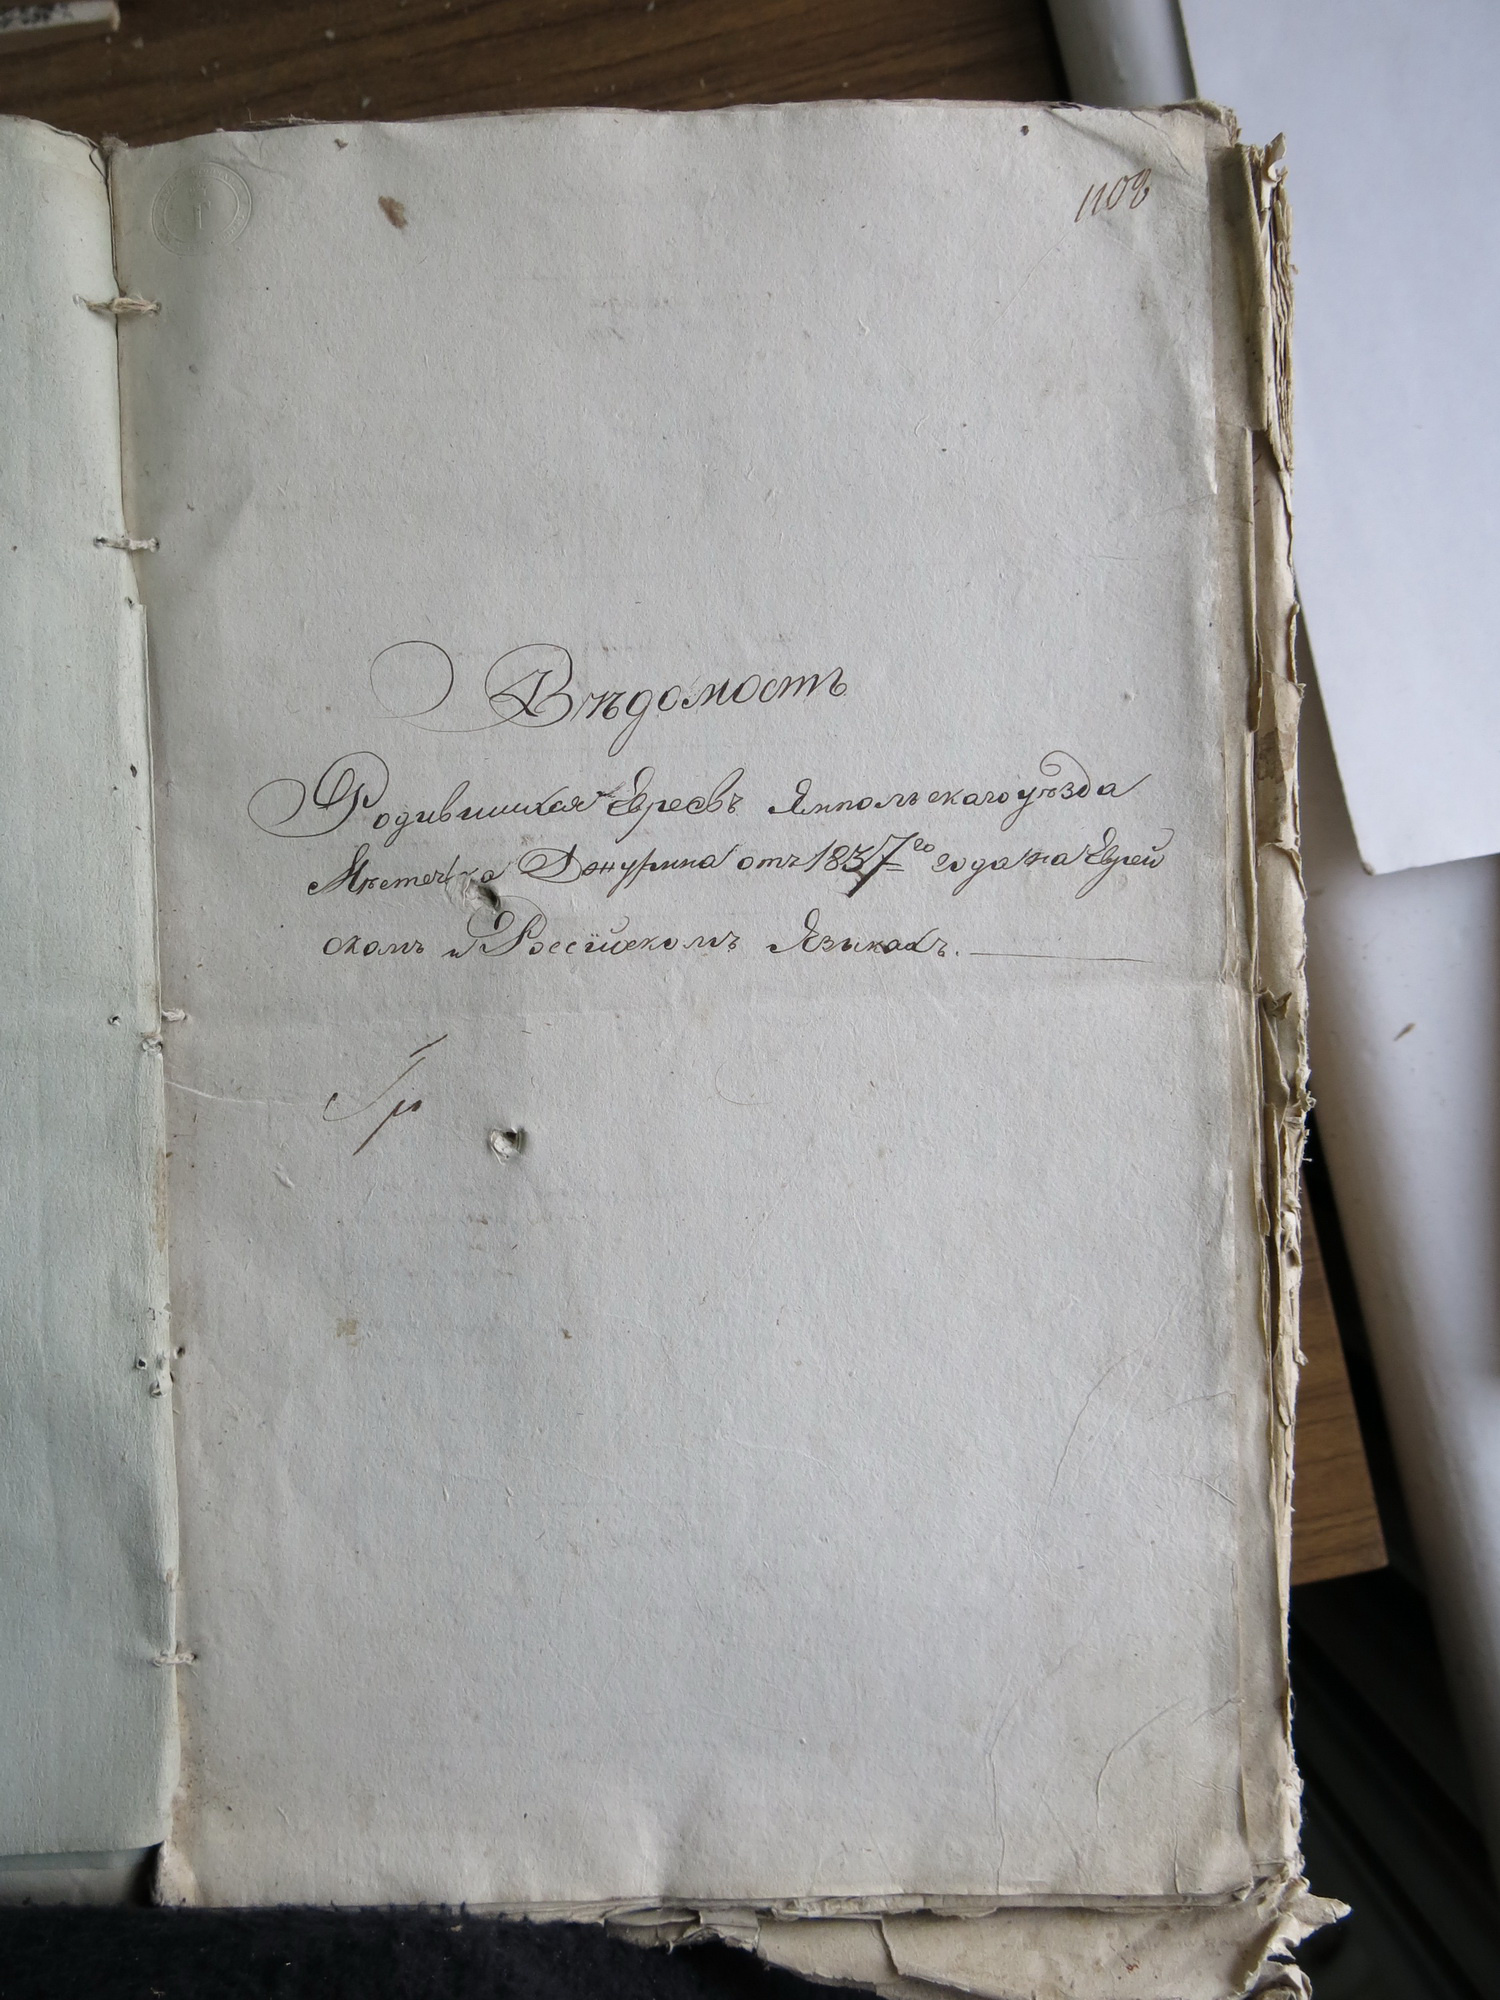 1108
Вѣдомость
Родившихся Евреевъ Ямпольскаго уѣзда
Мѣстечка Джурина отъ 1837го года на Еврей
скомъ и Россійскомъ Языкахъ.